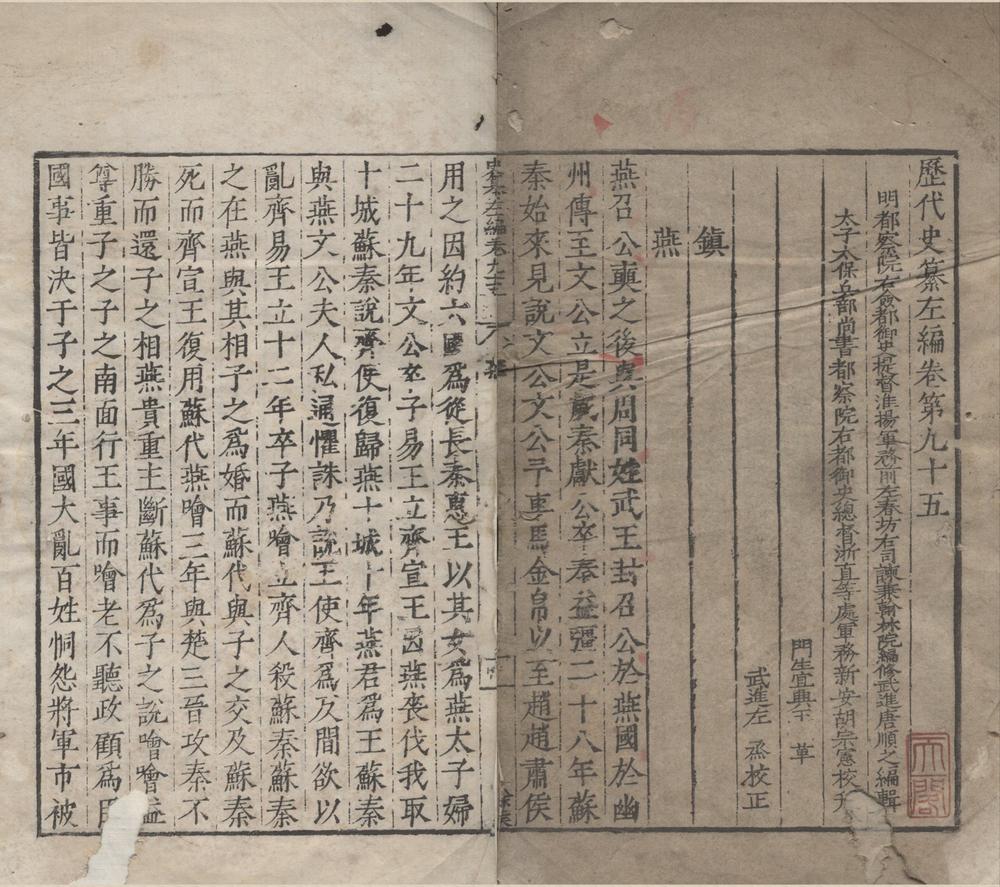 歷代史纂左編卷第九十五
明都察院右僉都御史提督淮揚軍務前左春坊右司諫兼翰林院編修武進唐順之編輯
太子太保兵部尚書都察院右都御史總督浙直等處軍務新安胡宗憲校刊
門生宜興王革
武進左烝校正
鎮
燕
燕召公奭之後與周同姓武王封召公於燕國於幽
州傳至文公立是歲秦獻公卒秦益彊二十八年蘇
秦始來見說文公文公予車馬金帛以至趙趙肅侯
用之因約六國為從長秦惠王以其女為燕太子婦
二十九年文公卒子易王立齊宣王因燕喪伐我取
十城蘇秦說齊使復歸燕十城十年燕君為王蘇秦
與燕文公夫人私通懼誅乃說王使齊為反間欲以
亂齊易王立十二年卒子燕噲立齊人殺蘇秦蘇秦
之在燕與其相子之為婚而蘇代與子之交及蘇秦
死而齊宣王復用蘇代燕噲三年與楚三晉攻秦不
勝而還子之相燕貴重主斷蘇代為子之說噲噲益
尊重子之子之南面行王事而噲老不聽政顧為臣
國事皆決于子之三年國大亂百姓恫怨將軍市被